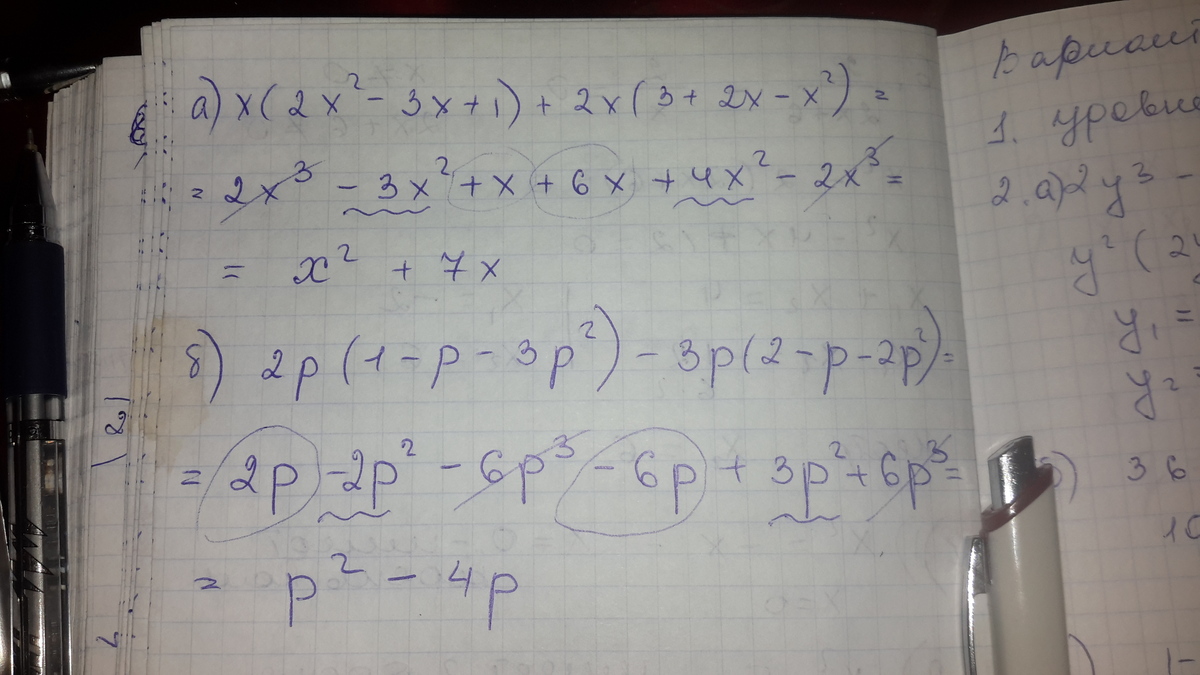 а) x(2x² - 3x + 1) + 2x(3 + 2x - x²) =
= 2x³ - 3x² + x + 6x + 4x² - 2x³ =
= x² + 7x
б) 2p(1 - p - 3p²) - 3p(2 - p - 2p²) =
= 2p - 2p² - 6p³ - 6p + 3p² + 6p³ =
= p² - 4p
Вариант
1. уравне
2. а) 2y³ -
y² (2y
y₁ =
y₂ =
б) 36